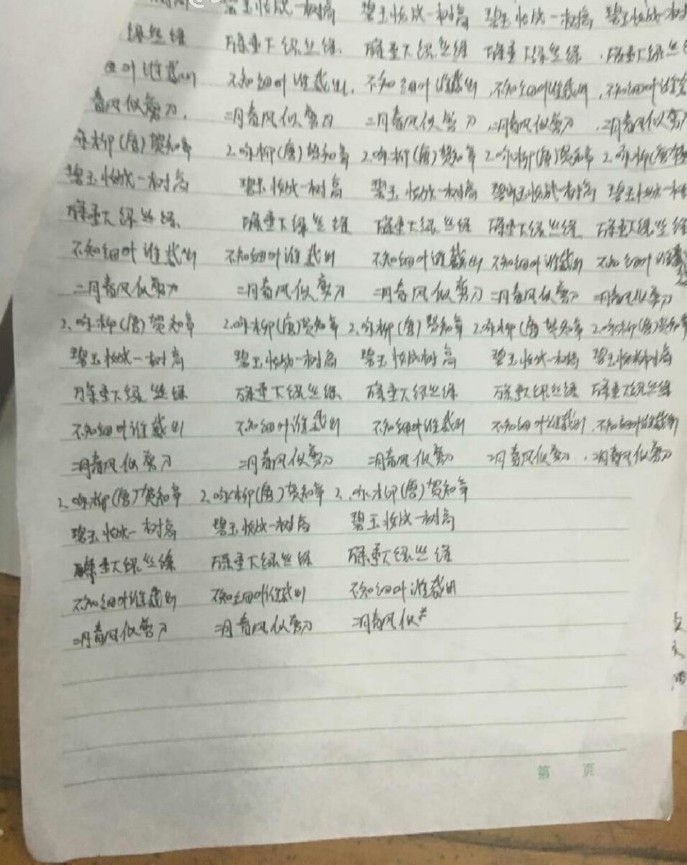 碧玉妆成一树高 碧玉妆成一树高 碧玉妆成一树高 碧玉妆成一树
绿丝绦 万条垂下绿丝绦 万条垂下绿丝绦 万条垂下绿丝绦 万条垂下绿丝
细叶谁裁出 不知细叶谁裁出 不知细叶谁裁出 不知细叶谁裁出 不知细叶谁裁
春风似剪刀 二月春风似剪刀 二月春风似剪刀 二月春风似剪刀 二月春风似剪刀
咏柳(唐)贺知章 2.咏柳(唐)贺知章 2.咏柳(唐)贺知章 2.咏柳(唐)贺知章 2.咏柳(唐)贺
碧玉妆成一树高 碧玉妆成一树高 碧玉妆成一树高 碧玉妆成一树高 碧玉妆成一树
万条垂下绿丝绦 万条垂下绿丝绦 万条垂下绿丝绦 万条垂下绿丝绦 万条垂下绿丝绦
不知细叶谁裁出 不知细叶谁裁出 不知细叶谁裁出 不知细叶谁裁出 不知细叶谁裁
二月春风似剪刀 二月春风似剪刀 二月春风似剪刀 二月春风似剪刀 二月春风似剪刀
2.咏柳(唐)贺知章 2.咏柳(唐)贺知章 2.咏柳(唐)贺知章 2.咏柳(唐)贺知章 2.咏柳(唐)贺知章
碧玉妆成一树高 碧玉妆成一树高 碧玉妆成树高 碧玉妆成一树高 碧玉妆成树高
万条垂下绿丝绦 万条垂下绿丝绦 万条垂下绿丝绦 万条垂下绿丝绦 万条垂下绿丝绦
不知细叶谁裁出 不知细叶谁裁出 不知细叶谁裁出 不知细叶谁裁出 不知细叶谁裁出
二月春风似剪刀 二月春风似剪刀 二月春风似剪刀 二月春风似剪刀 二月春风似剪刀
2.咏柳(唐)贺知章 2.咏柳(唐)贺知章 2.咏柳(唐)贺知章
碧玉妆成一树高 碧玉妆成一树高 碧玉妆成一树高
万条垂下绿丝绦 万条垂下绿丝绦 万条垂下绿丝绦
不知细叶谁裁出 不知细叶谁裁出 不知细叶谁裁出
二月春风似剪刀 二月春风似剪刀 二月春风似
第 页